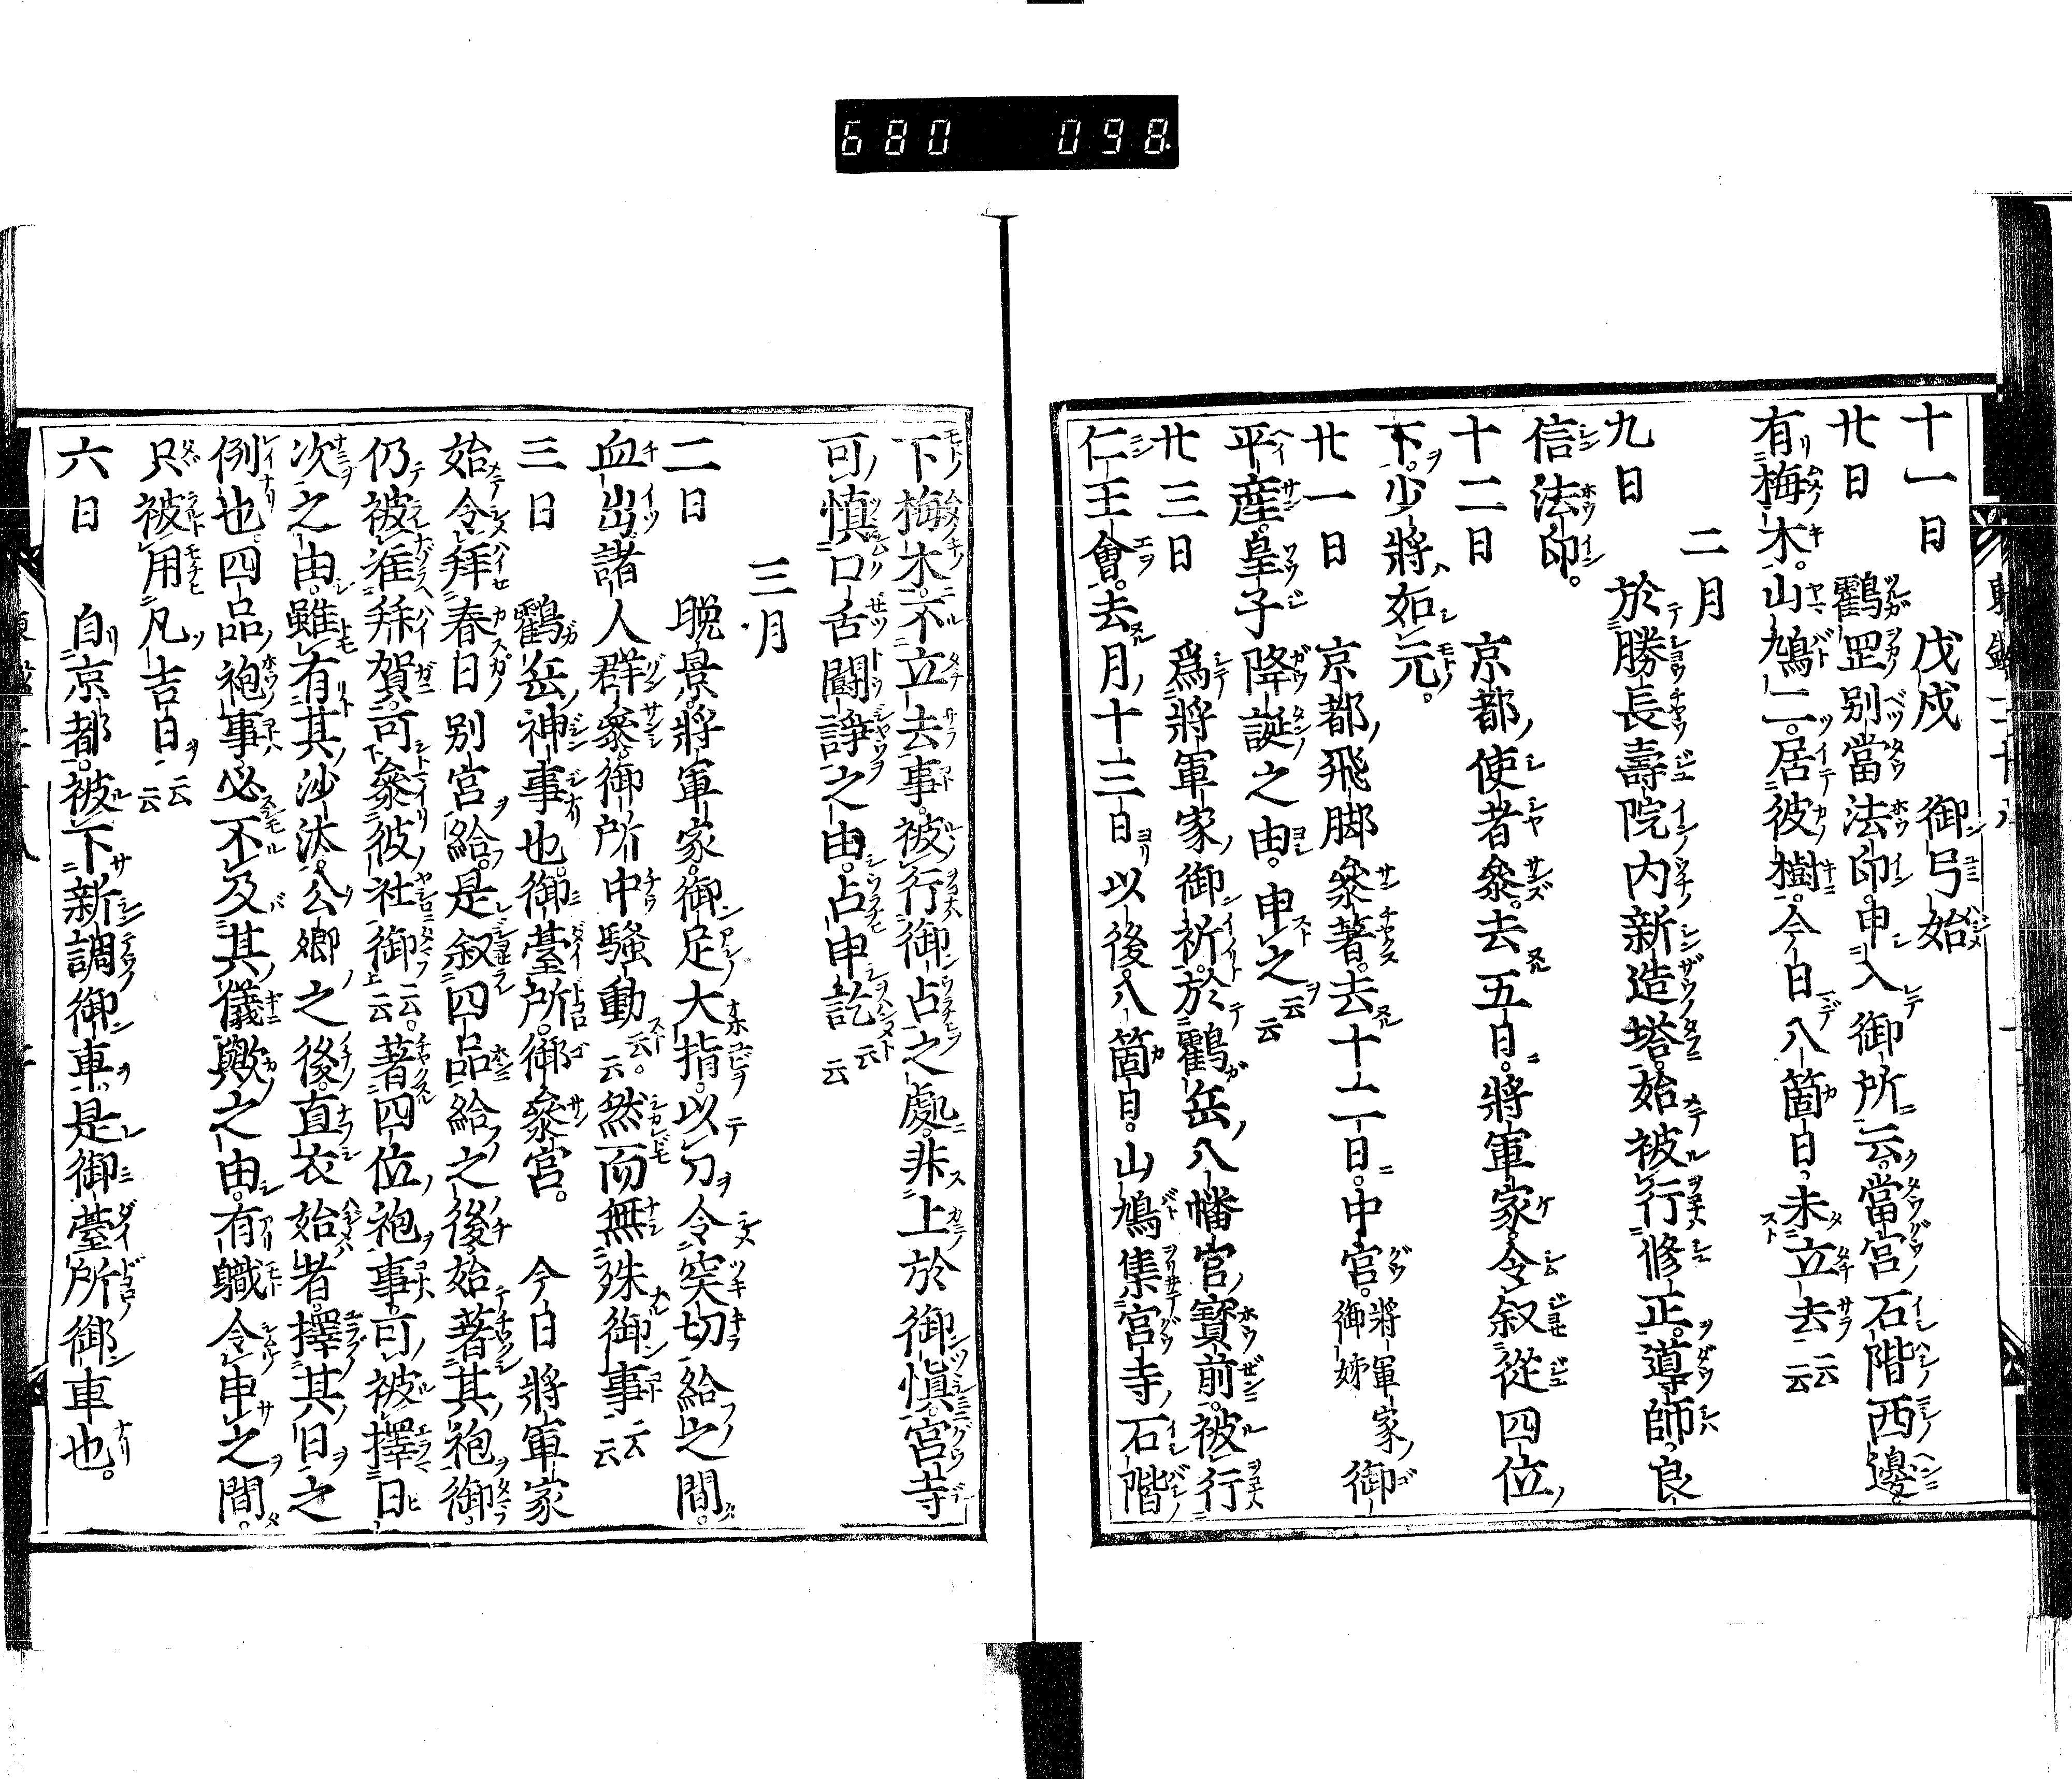 680 098
十一日　戊戌　御弓始
廿日　鶴岡別當法印。申入御所云。當宮石階西邊。
有梅木。山鳩一。居彼樹。今日八箇日。未立去云云
二月
九日　於勝長壽院内新造塔。始被行修正。導師。良
信法印。
十二日　京都使者參。去五日。將軍家。令叙從四位
下。少將如元。
廿一日　京都飛脚參著。去十二日。中宮。將軍家御姊御
平産。皇子降誕之由。申之云云
廿三日　爲將軍家御祈。於鶴岳八幡宮寳前。被行
仁王會。去月十三日以後。八箇日。山鳩集宮寺石階
下梅木。不立去事。被行御占之處。非上於御愼。宮寺
可愼口舌鬪諍之由。占申訖云云
三月
二日　晩景。將軍家。御足大指。以刀令突切給之間。
血出。諸人群參。御所中騷動云云。然而無殊御事云云
三日　鶴岳神事也。御臺所。御參宮。　今日將軍家
始令拜春日別宮給。是叙四品給之後。始著其袍御。
仍被准拜賀。可參彼社御云云。著四位袍事。可被擇日
次之由。雖有其沙汰。公卿之後。直衣始者。擇其日之
例也。四品袍事。必不及其儀歟之由。有職令申之間。
只被用凡吉日云云
六日　自京都。被下新調御車。是御臺所御車也。